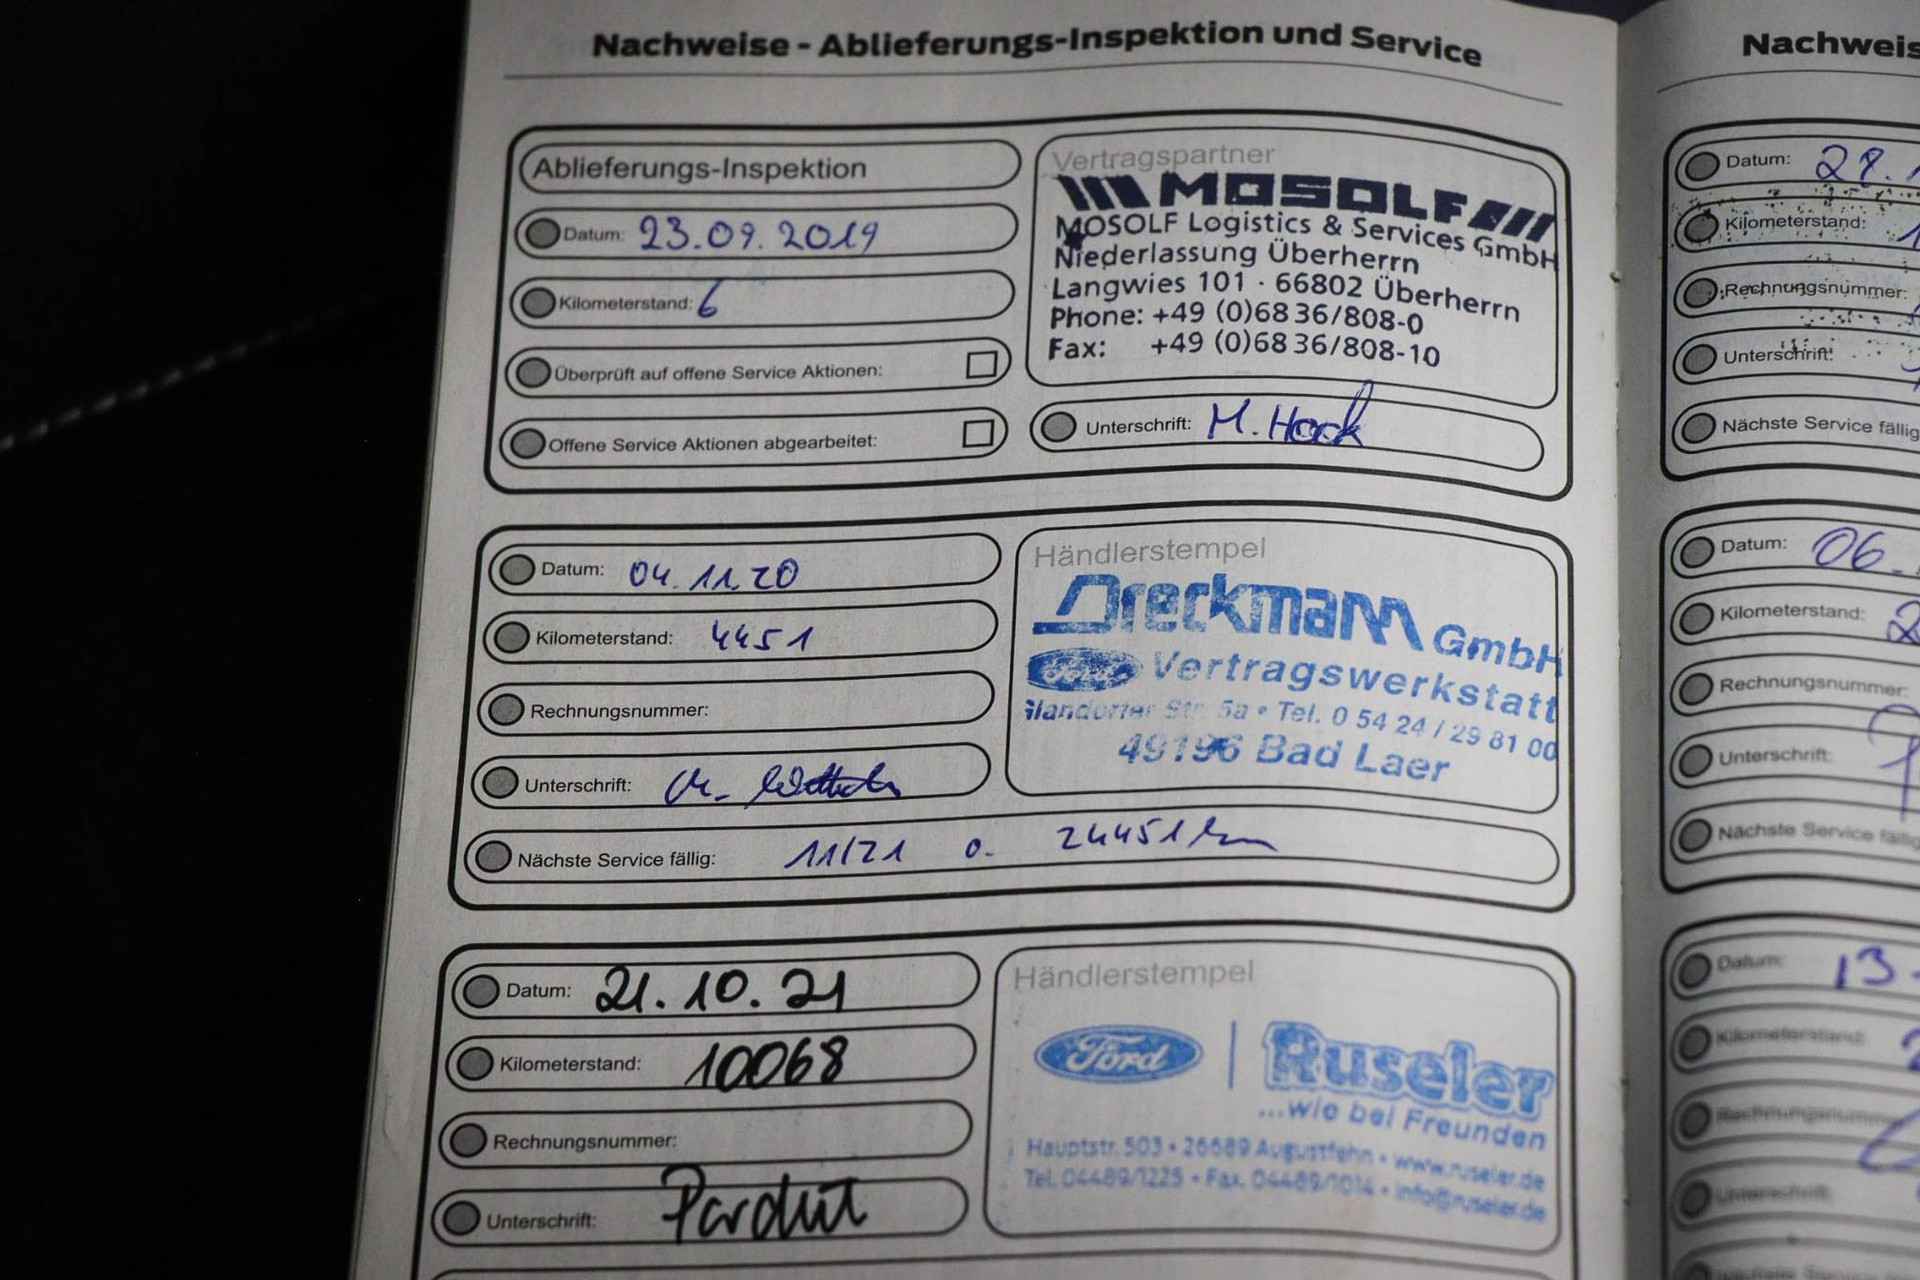 Nachweise - Ablieferungs-Inspektion und Service
Ablieferungs-Inspektion
Datum: 23.09.2019
Kilometerstand: 6
Überprüft auf offene Service Aktionen:
Offene Service Aktionen abgearbeitet:
Vertragspartner
MOSOLF
MOSOLF Logistics & Services GmbH
Niederlassung Überherrn
Langwies 101 · 66802 Überherrn
Phone: +49 (0)68 36/808-0
Fax: +49 (0)68 36/808-10
Unterschrift: M. Hock
Datum: 04.11.20
Kilometerstand: 4451
Rechnungsnummer:
Unterschrift:
Nächste Service fällig: 11/21 o. 24451 km
Händlerstempel
Dreckmann GmbH
Ford Vertragswerkstatt
Glandorfer Str. 5a • Tel. 0 54 24 / 29 81 00
49196 Bad Laer
Datum: 21.10.21
Kilometerstand: 10068
Rechnungsnummer:
Unterschrift:
Händlerstempel
Ford | Ruseler
...wie bei Freunden
Hauptstr. 503 • 26689 Augustfehn • www.ruseler.de
Tel. 04489/1225 • Fax. 04489/1014 • info@ruseler.de
Nachweis
Datum: 28.
Kilometerstand: 1
Rechnungsnummer:
Unterschrift:
Nächste Service fällig
Datum: 06.
Kilometerstand: 2
Rechnungsnummer:
Unterschrift:
Nächste Service fällig
Datum: 13.
Kilometerstand: 2
Rechnungsnummer
Unterschrift: